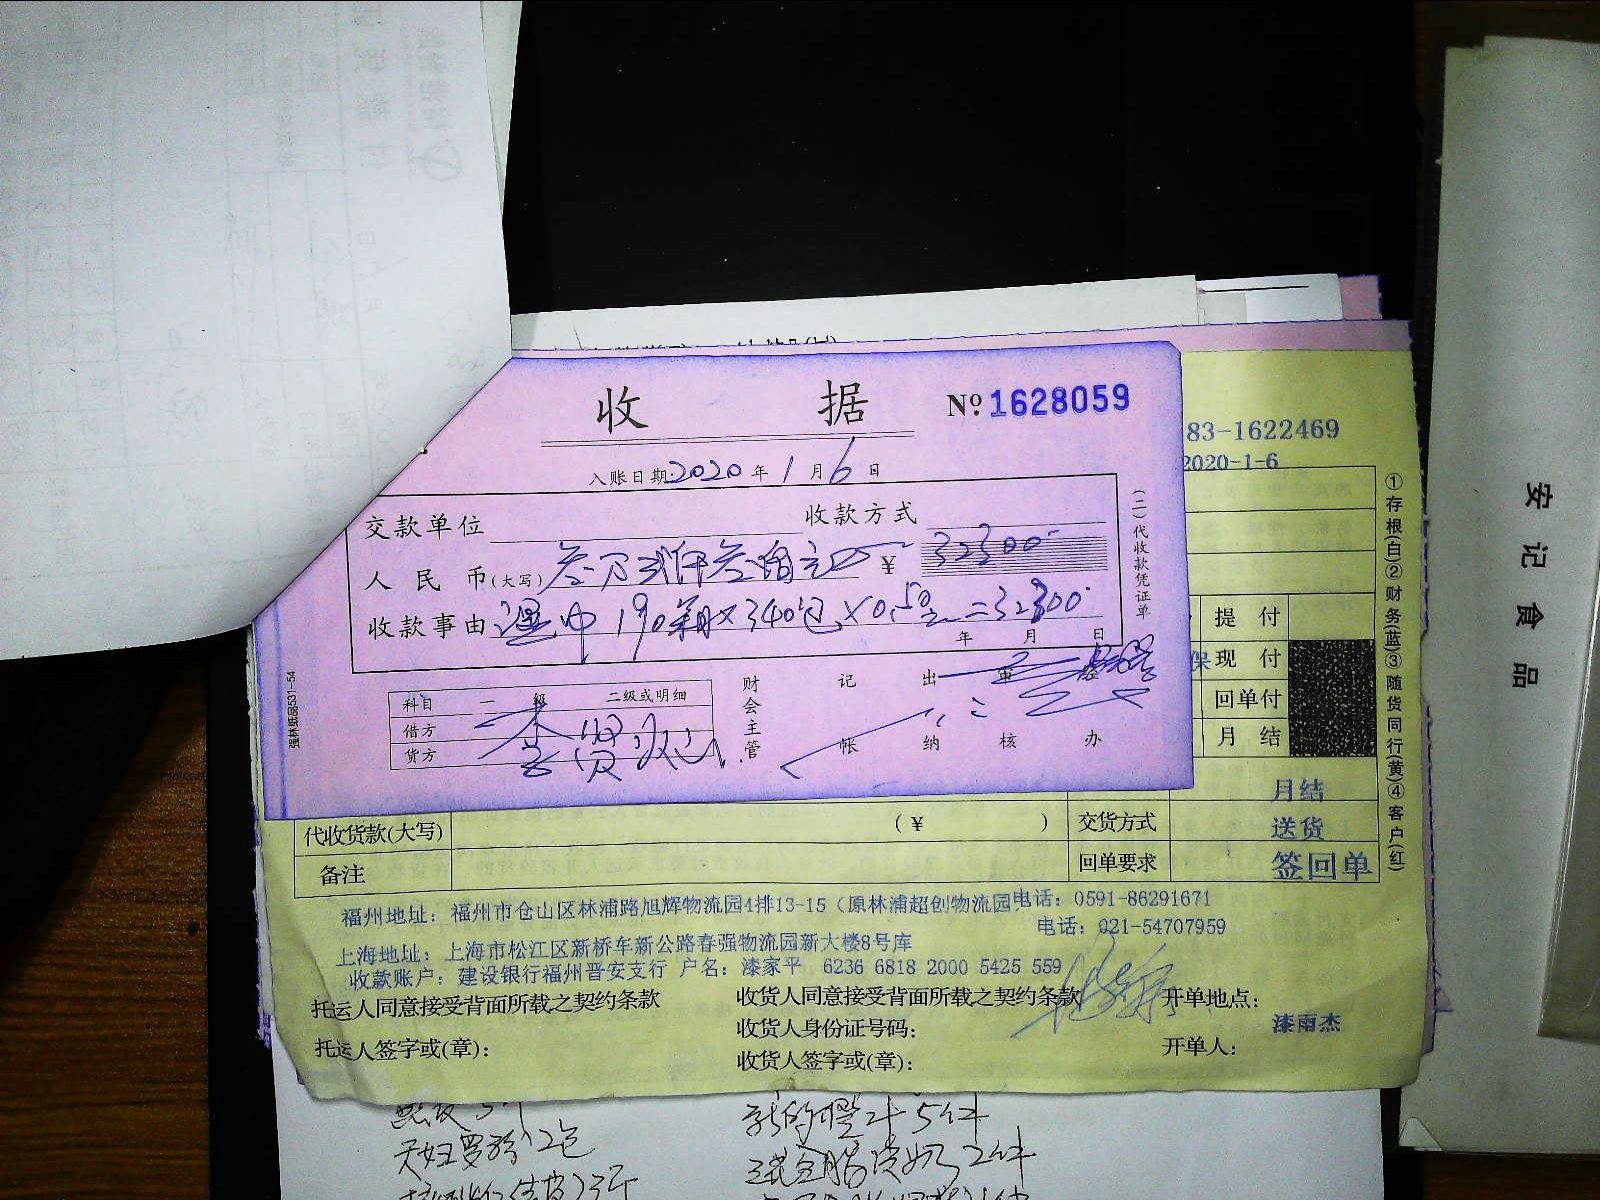 收 据 №1628059
入账日期:2020年1月6日
交款单位 收款方式
人民币(大写)叁万贰仟叁佰元 ¥ 32300
收款事由 340包×0.5元=32300
年 月 日
(二)代收款凭证单
强林纸品531-54
科目 一级 二级或明细
借方
贷方
财会主管 记帐 出纳 审核 经办
83-1622469
2020-1-6
提付
保现付
回单付
月结
①存根(白)②财务(蓝)③随货同行(黄)④客户(红)
月结
代收货款(大写) (¥ ) 交货方式 送货
备注 回单要求 签回单
福州地址：福州市仓山区林浦路旭辉物流园4排13-15（原林浦超创物流园 电话：0591-86291671
电话：021-54707959
上海地址：上海市松江区新桥车新公路春强物流园新大楼8号库
收款账户：建设银行福州晋安支行 户名：漆家平 6236 6818 2000 5425 559
托运人同意接受背面所载之契约条款 收货人同意接受背面所载之契约条款 开单地点：
收货人身份证号码： 漆雨杰
托运人签字或(章)： 收货人签字或(章)： 开单人：
天妇罗粉12包
安记食品